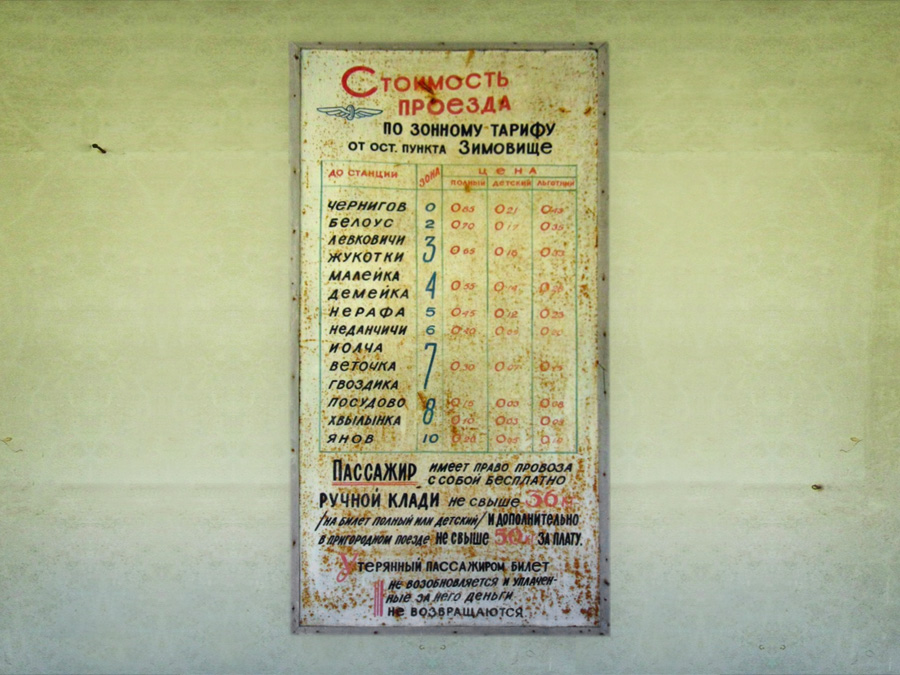 Стоимость
проезда
по зонному тарифу
от ост. пункта Зимовище
до станции зона цена
полный детский льготный
Чернигов 0 0 65 0 21
Белоус 2 0 70 0 17 0 35
Левковичи
Жукотки 3 0 65 0 16 0 33
Малейка
Демейка 4 0 55 0 14
Нерафа 5 0 45 0 12 0 23
Неданчичи 6 0 40 0 20
Иолча
Веточка 7 0 30 0 07
Гвоздика
Посудово 8 0 15 0 03 0 08
Хвылынка 0 10 0 03 0 05
Янов 10 0 20 0 05 0 10
Пассажир имеет право провоза
с собой бесплатно
ручной клади не свыше 36 кг
/на билет полный или детский/ и дополнительно
в пригородном поезде не свыше 50 кг за плату.
Утерянный пассажиром билет
не возобновляется и уплачен-
ные за него деньги
не возвращаются